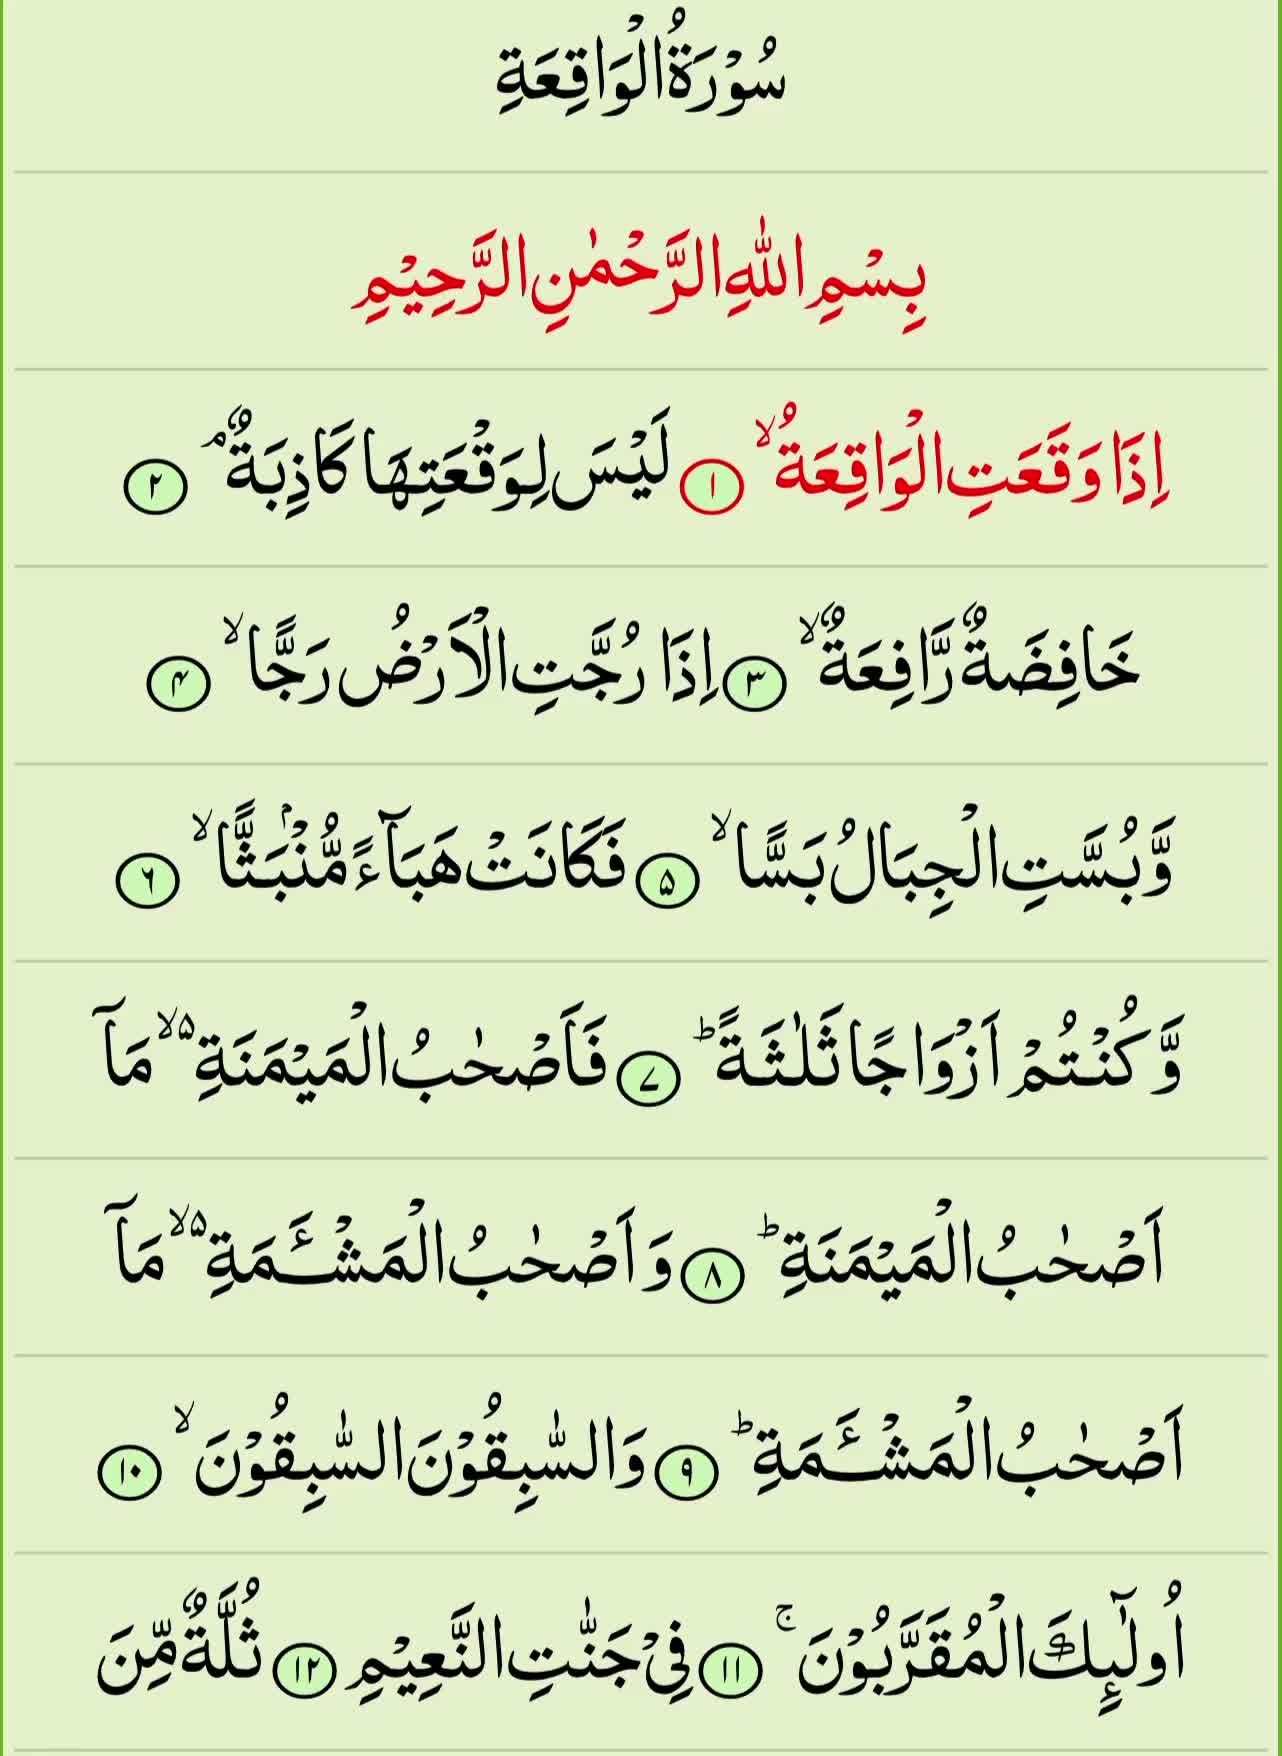 سُوْرَةُ الْوَاقِعَةِ
بِسْمِ اللّٰهِ الرَّحْمٰنِ الرَّحِيْمِ
اِذَا وَقَعَتِ الْوَاقِعَةُ ۙ ۱ لَيْسَ لِوَقْعَتِهَا كَاذِبَةٌ ۘ ۲
خَافِضَةٌ رَّافِعَةٌ ۙ ۳ اِذَا رُجَّتِ الْاَرْضُ رَجًّا ۙ ۴
وَّبُسَّتِ الْجِبَالُ بَسًّا ۙ ۵ فَكَانَتْ هَبَآءً مُّنْۢبَثًّا ۙ ۶
وَّكُنْتُمْ اَزْوَاجًا ثَلٰثَةً ؕ ۷ فَاَصْحٰبُ الْمَيْمَنَةِ ۵ۙ مَآ
اَصْحٰبُ الْمَيْمَنَةِ ؕ ۸ وَاَصْحٰبُ الْمَشْـَٔمَةِ ۵ۙ مَآ
اَصْحٰبُ الْمَشْـَٔمَةِ ؕ ۹ وَالسّٰبِقُوْنَ السّٰبِقُوْنَ ۙ ۱۰
اُولٰٓئِكَ الْمُقَرَّبُوْنَ ۚ ۱۱ فِيْ جَنّٰتِ النَّعِيْمِ ۱۲ ثُلَّةٌ مِّنَ